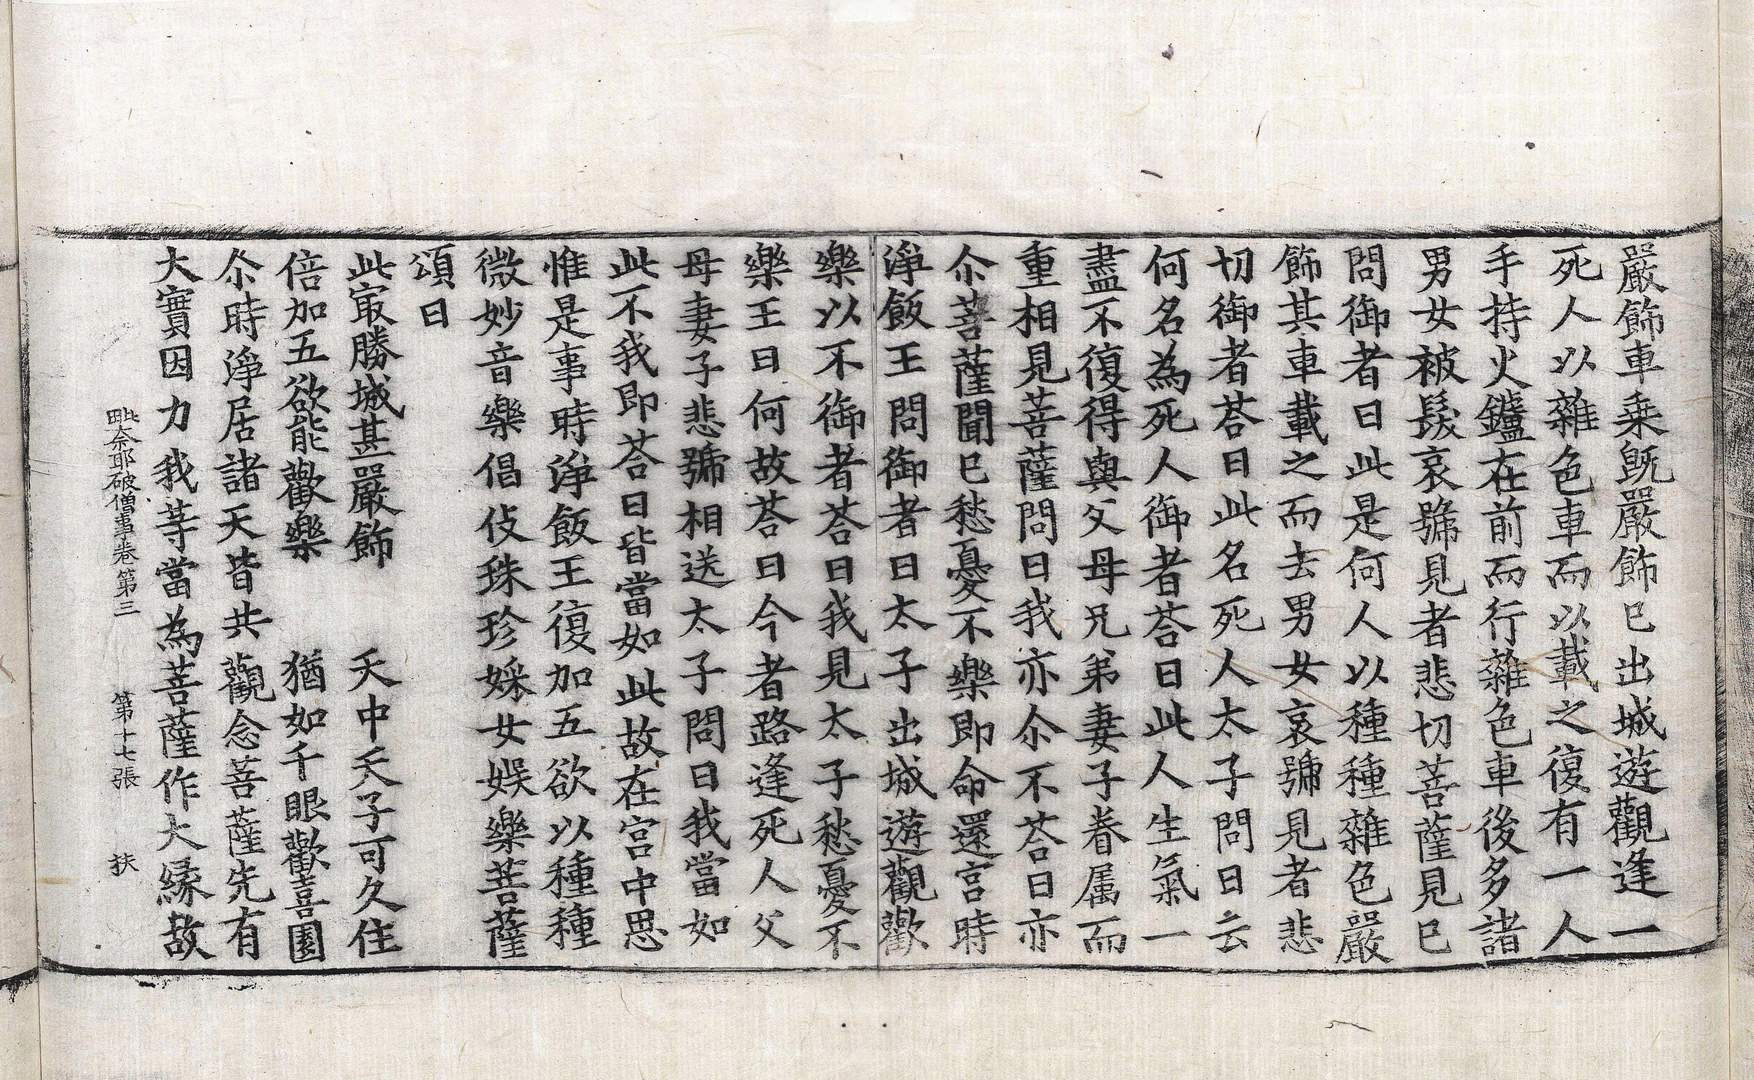 嚴飾車乘旣嚴飾已出城遊觀逢一
死人以雜色車而以載之復有一人
手持火鑪在前而行雜色車後多諸
男女被髮哀號見者悲切菩薩見已
問御者曰此是何人以種種雜色嚴
飾其車載之而去男女哀號見者悲
切御者荅曰此名死人太子問曰云
何名為死人御者荅曰此人生氣一
盡不復得與父母兄弟妻子眷属而
重相見菩薩問曰我亦尒不荅曰亦
尒菩薩聞已愁憂不樂即命還宮時
淨飯王問御者曰太子出城遊觀歡
樂以不御者荅曰我見太子愁憂不
樂王曰何故荅曰今者路逢死人父
母妻子悲號相送太子問曰我當如
此不我即荅曰皆當如此故在宮中思
惟是事時淨飯王復加五欲以種種
微妙音樂倡伎珠珍婇女娱樂菩薩
頌曰
此㝡勝城甚嚴飾　天中天子可久住
倍加五欲能歡樂　猶如千眼歡喜園
尒時淨居諸天皆共觀念菩薩先有
大寶因力我等當為菩薩作大緣故
毗奈耶破僧事卷第三　第十七張　扶